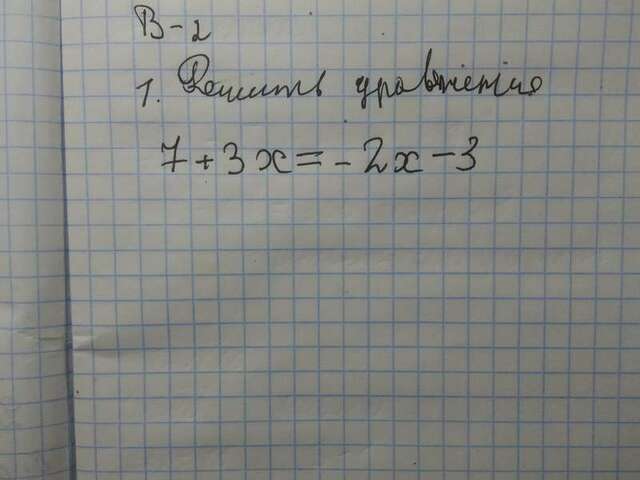 В-2
1. Решить уравнения
7+3x=-2x-3